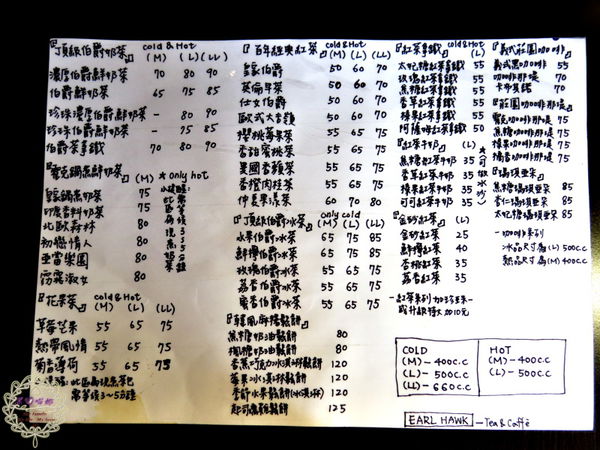 『頂級伯爵奶茶』 cold & Hot
(M) (L) (LL)
濃厚伯爵鮮奶茶 70 80 90
伯爵鮮奶茶 65 75 85
珍珠濃厚伯爵鮮奶茶 - 80 90
珍珠伯爵鮮奶茶 - 75 85
伯爵茶拿鐵 70 80 90
(M) *only hot
皇家鍋煮奶茶 75
印度香料奶茶 75
北歐森林 75
初戀情人 75
亞當樂園 75
窈窕淑女 75
『花果茶』 cold & Hot
(M) (L) (LL)
草莓芒果 55 65 75
熱帶風情 55 65 75
葡香薄荷 55 65 75
需等候3~5分鐘
『百年經典紅茶』 cold & Hot
(M) (L) (LL)
皇家伯爵 50 60 70
英倫早茶 50 60 70
仕女伯爵 50 60 70
歐式大吉嶺 50 65 75
櫻桃莓果茶 55 65 75
香甜蜜桃茶 55 65 75
異國香蘋茶 55 65 75
香橙肉桂茶 55 65 75
仲夏果漾茶 60 70 80
『頂級伯爵冰茶』 only cold
(M) (L) (LL)
水果伯爵冰茶 65 75 85
鮮檸伯爵冰茶 65 75 85
玫瑰伯爵冰茶 55 65 75
荔香伯爵冰茶 55 65 75
蜜香伯爵冰茶 55 65 75
焦糖奶油鬆餅 80
楓糖奶油鬆餅 80
香蕉巧克力冰淇淋鬆餅 120
莓果冰淇淋鬆餅 120
季節水果鬆餅(冰淇淋) 120
起司燻雞鬆餅 125
『紅茶拿鐵』 cold & Hot
(L)
太妃糖紅茶拿鐵 55
玫瑰紅茶拿鐵 55
焦糖紅茶拿鐵 55
香草紅茶拿鐵 55
榛果紅茶拿鐵 55
阿薩姆紅茶拿鐵 50
『紅茶牛奶』 (L)
焦糖紅茶牛奶 35
香草紅茶牛奶 35
榛果紅茶牛奶 35
可可紅茶牛奶 35
*可做冰沙*
『金砂紅茶』 (L)
金砂紅茶 25
鮮檸紅茶 40
香桃紅茶 35
荔香紅茶 35
-紅茶系列加珍珠
或升級特大加10元
『義式莊園咖啡』
義式黑咖啡 55
咖啡那堤 70
卡布其諾 70
『莊園咖啡那堤』
焦糖咖啡那堤 75
榛果咖啡那堤 75
『瑪琪亞朵』
焦糖瑪琪亞朵 85
香草瑪琪亞朵 85
太妃糖瑪琪亞朵 85
-咖啡系列
冰品尺寸為(L) 500c.c
熱品尺寸為(M) 400c.c
COLD
(M)-400c.c
(L)-500c.c
(LL)-660c.c
HOT
(M)-400c.c
(L)-500c.c
EARL HAWK -Tea & Caffè